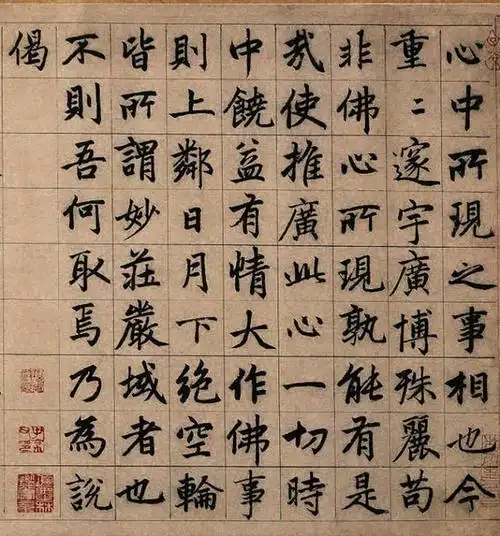 心中所現之事相也今
重〻邃宇廣博殊麗苟
非佛心所現孰能有是
哉使推廣此心一切時
中饒益有情大作佛事
則上鄰日月下絕空輪
皆所謂妙莊嚴域者也
不則吾何取焉乃為說
偈